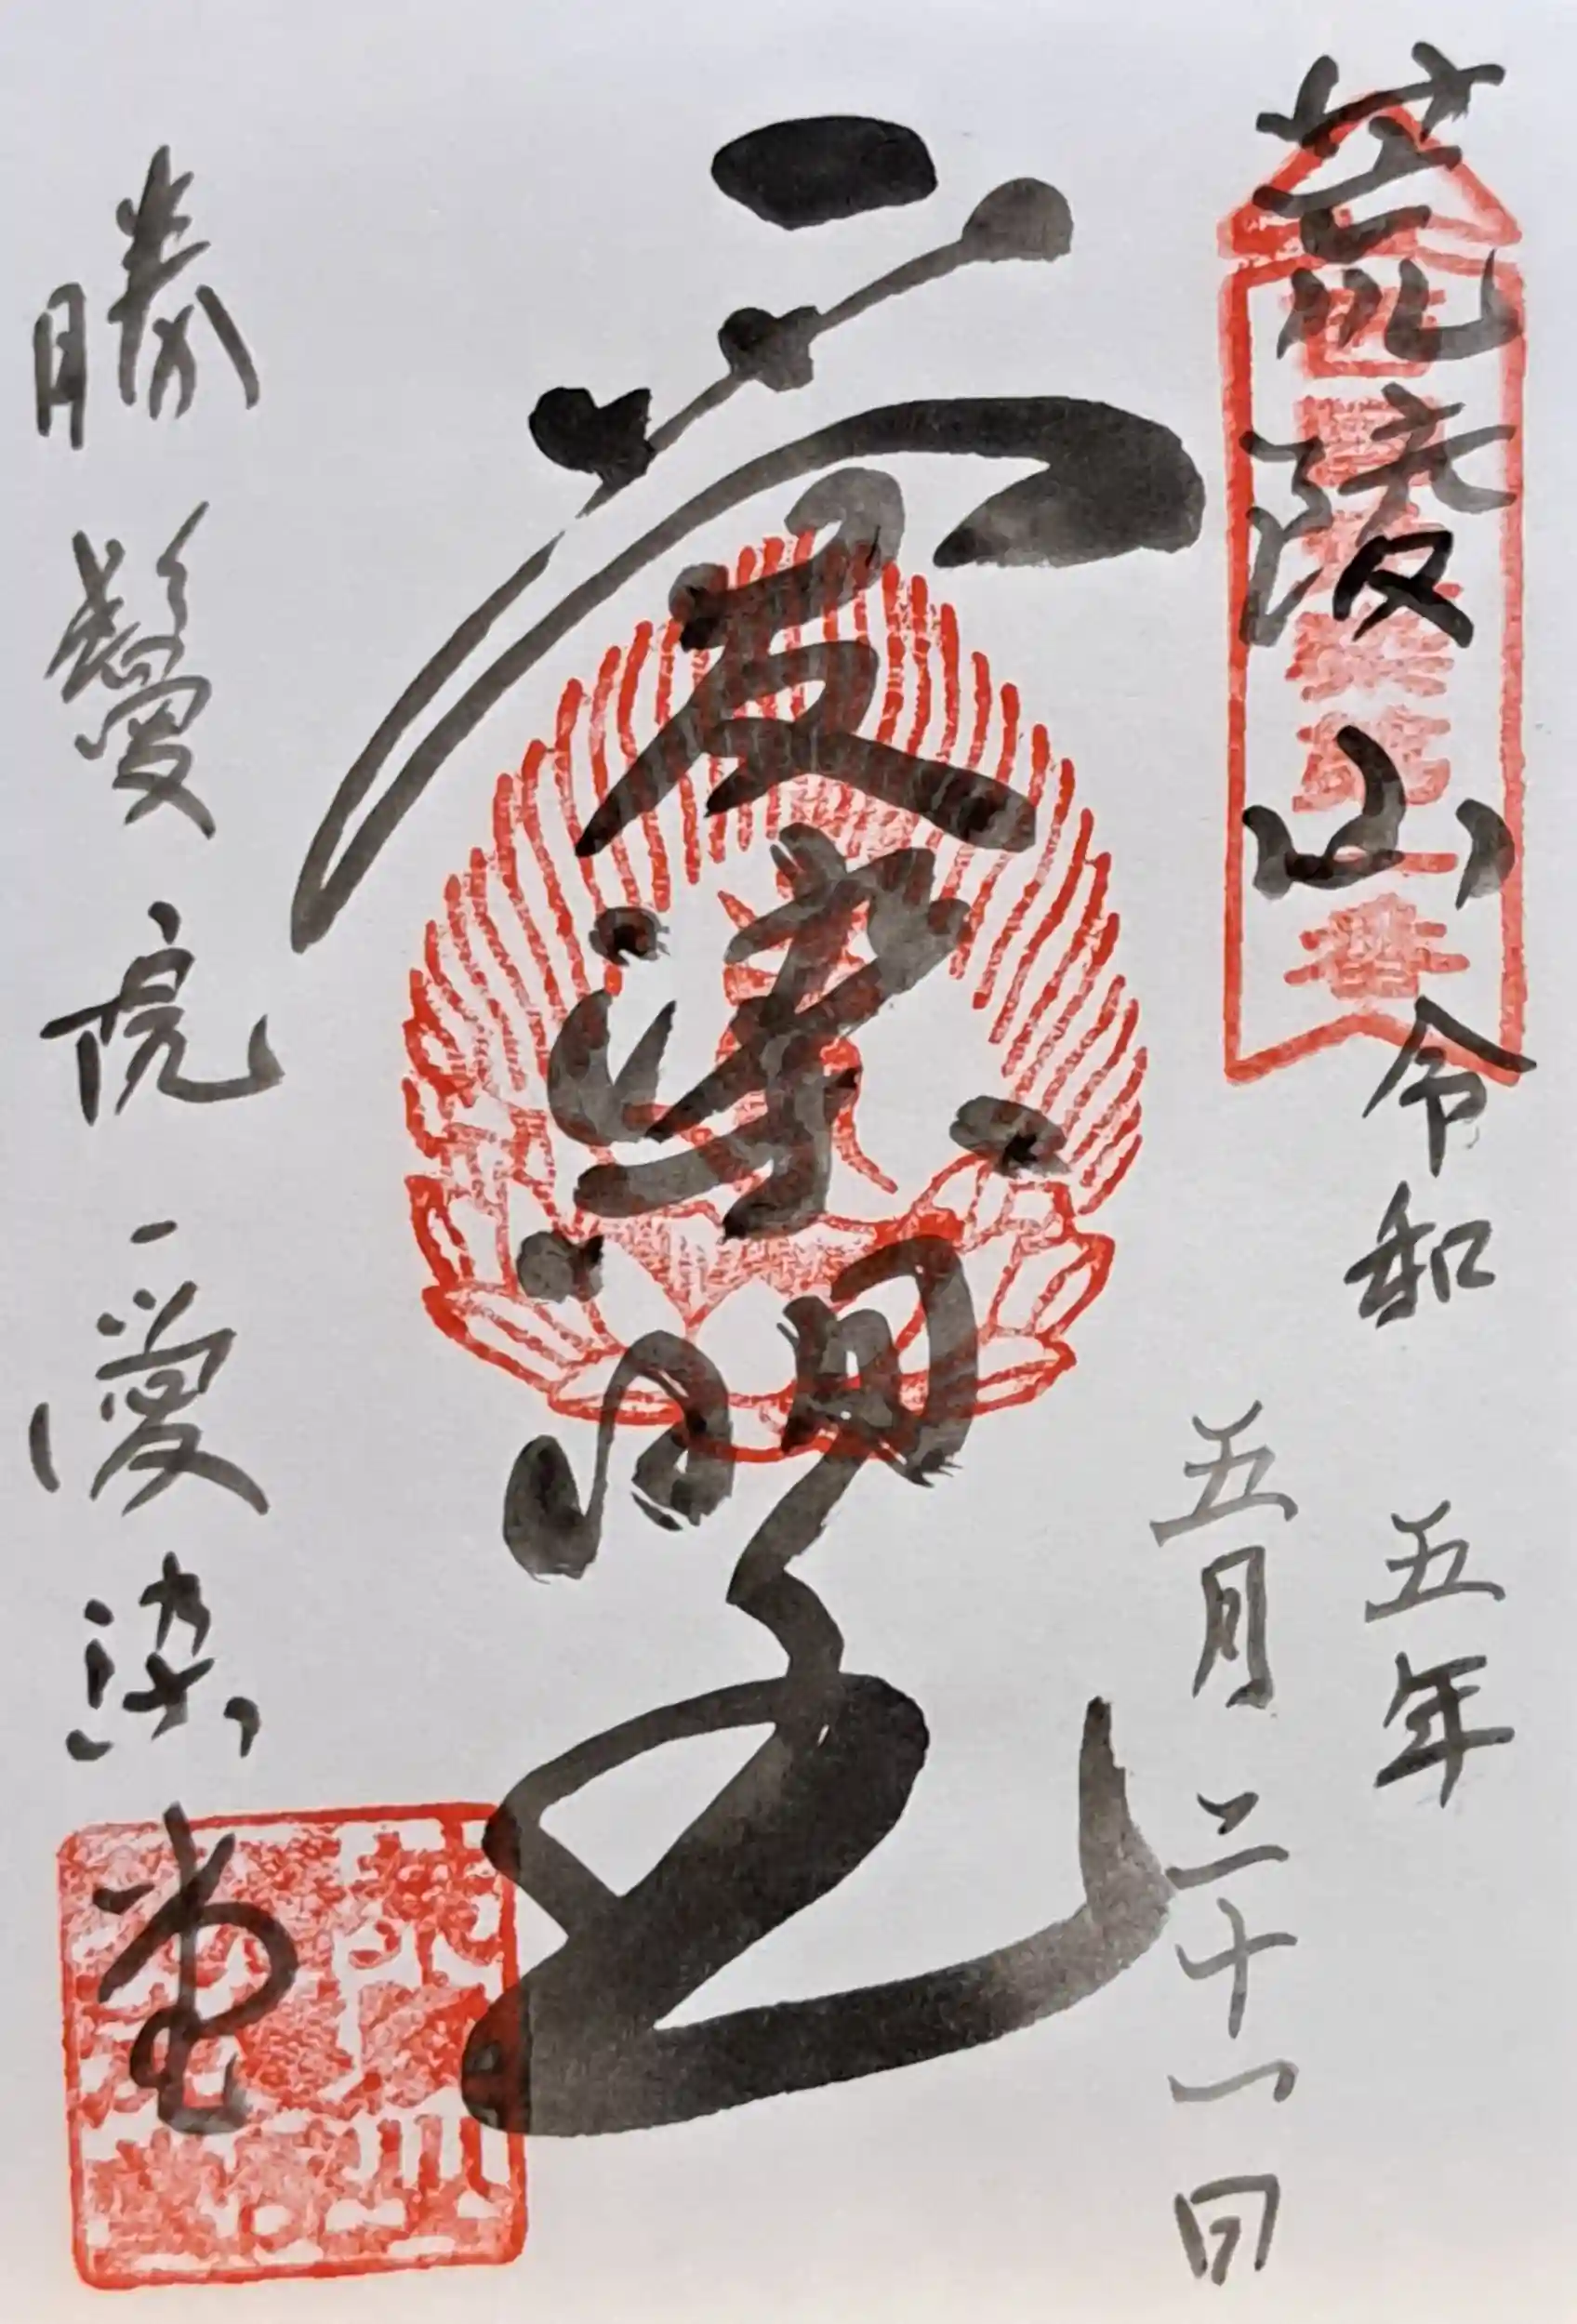 荒陵山
令和五年
五月二十一日
愛染明王
勝鬘院愛染堂